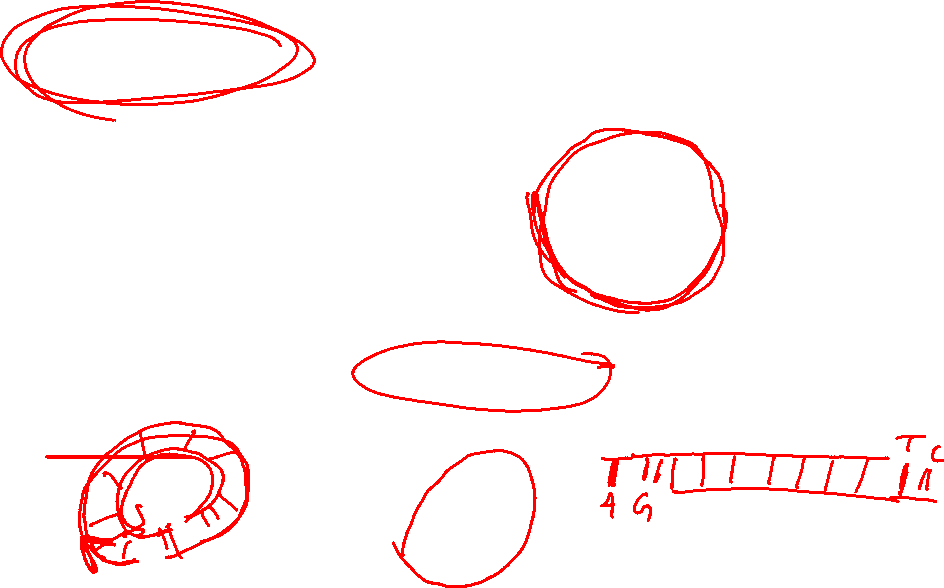 T C
A G